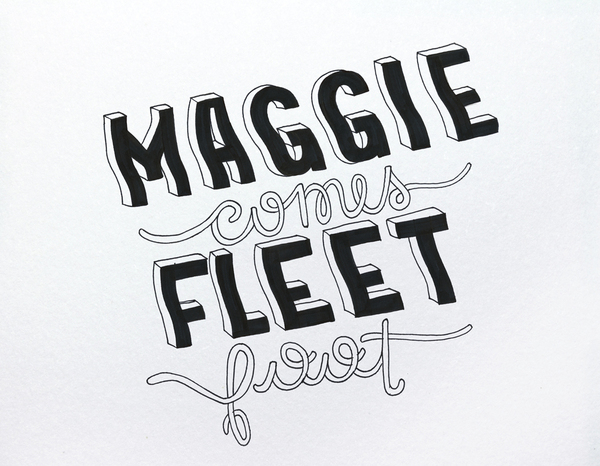 MAGGIE
comes
FLEET
foot